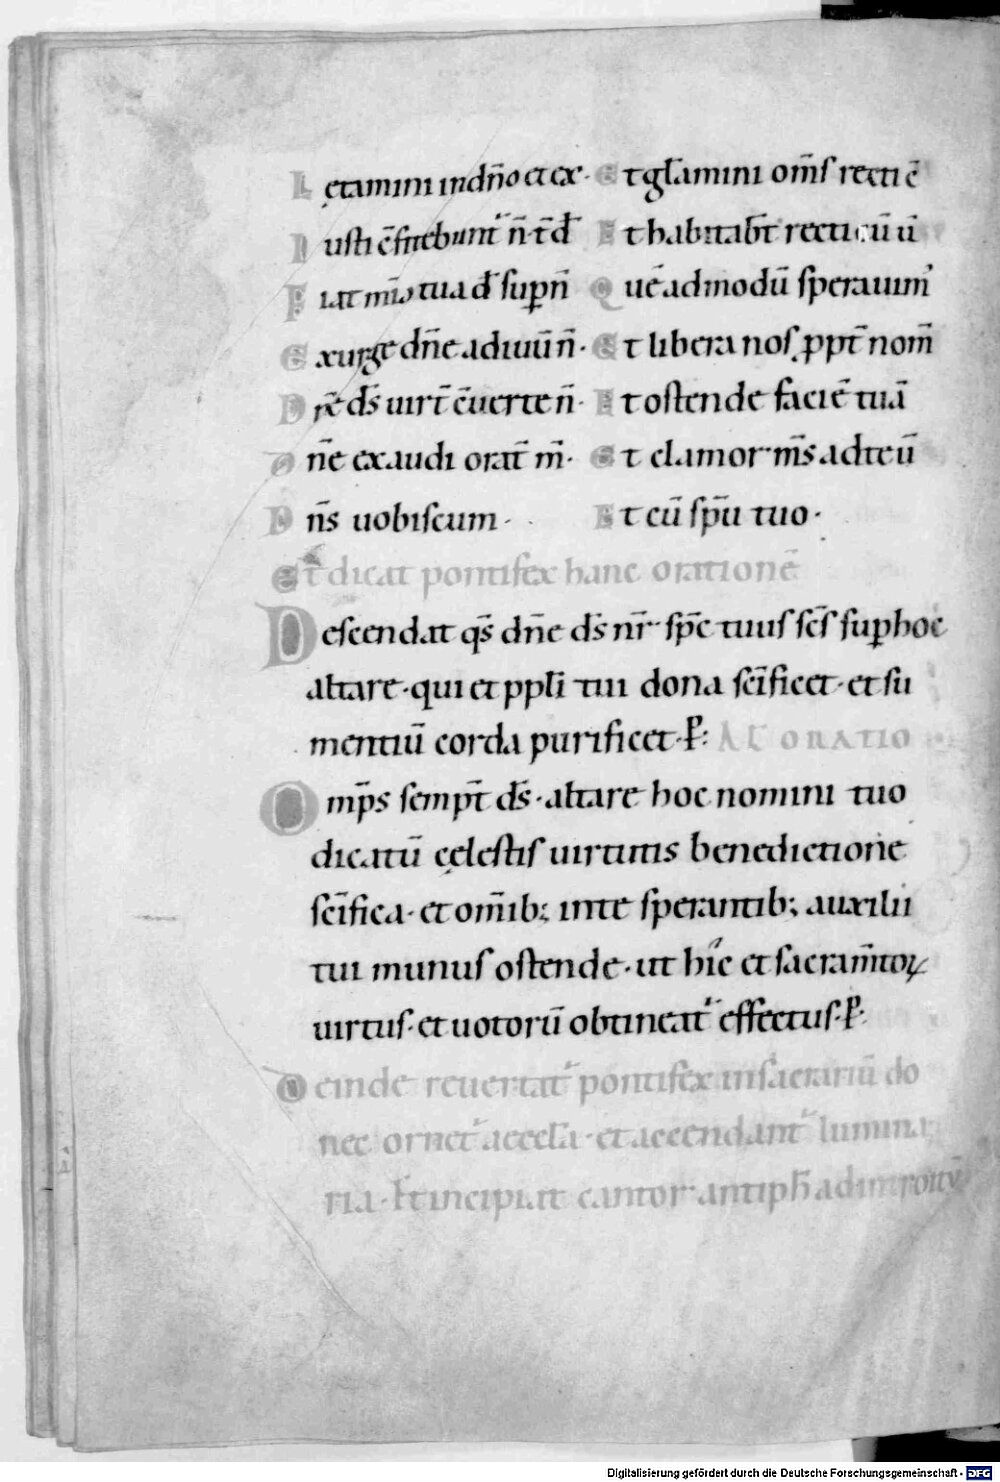 Lętamini in dn̄o et ex· Et gl̄amini om̄s recti c̄
Iusti c̄fitebunt᷑ n̄ t̄ d̄ Et habitab̄t recti cū ū
Fiat mīa tua d̄ sup̄ n̄ Quē admodū sperauim᷒
Exurge dn̄e adiuū n̄· Et libera nos ꝓpt̄ nom̄
Dn̄e ds̄ uirt̄ c̄uerte n̄· Et ostende faciē tuā
Dn̄e exaudi orat̄ m̄· Et clamor m̄s ad te ū
Dn̄s uobiscum· Et cū sp̄u tuo·
Et dicat pontifex hanc orationē
Descendat qs̄ dn̄e ds̄ nr̄ sp̄c tuus sc̄s suꝑ hoc
altare· qui et ppl̄i tui dona sc̄ificet· et su
mentiū corda purificet· p̄: ORATIO
Omp̄s sempt̄ ds̄· altare hoc nomini tuo
dicatū cęlestis uirtutis benedictione
sc̄ifica· et om̄ib; in te sperantib; auxilii
tui munus ostende· ut hic et sacram̄toꝝ
uirtus· et uotorū obtineat᷑ effectus· p̄·
Deinde reuertat᷑ pontifex in sacrariū do
nec ornet᷑ accl̄a· et accendant᷑ lumina
ria· incipiat cantor antiph̄ ad introitū
Digitalisierung gefördert durch die Deutsche Forschungsgemeinschaft - DFG